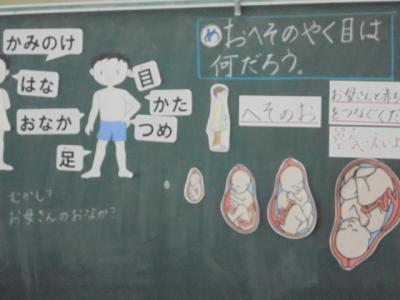 かみのけ
はな
おなか
足
目
かた
つめ
め おへそのやく目は
何だろう。
へそのお
お母さんと赤ち
をつなぐくだ
むかし?
お母さんのおなか?